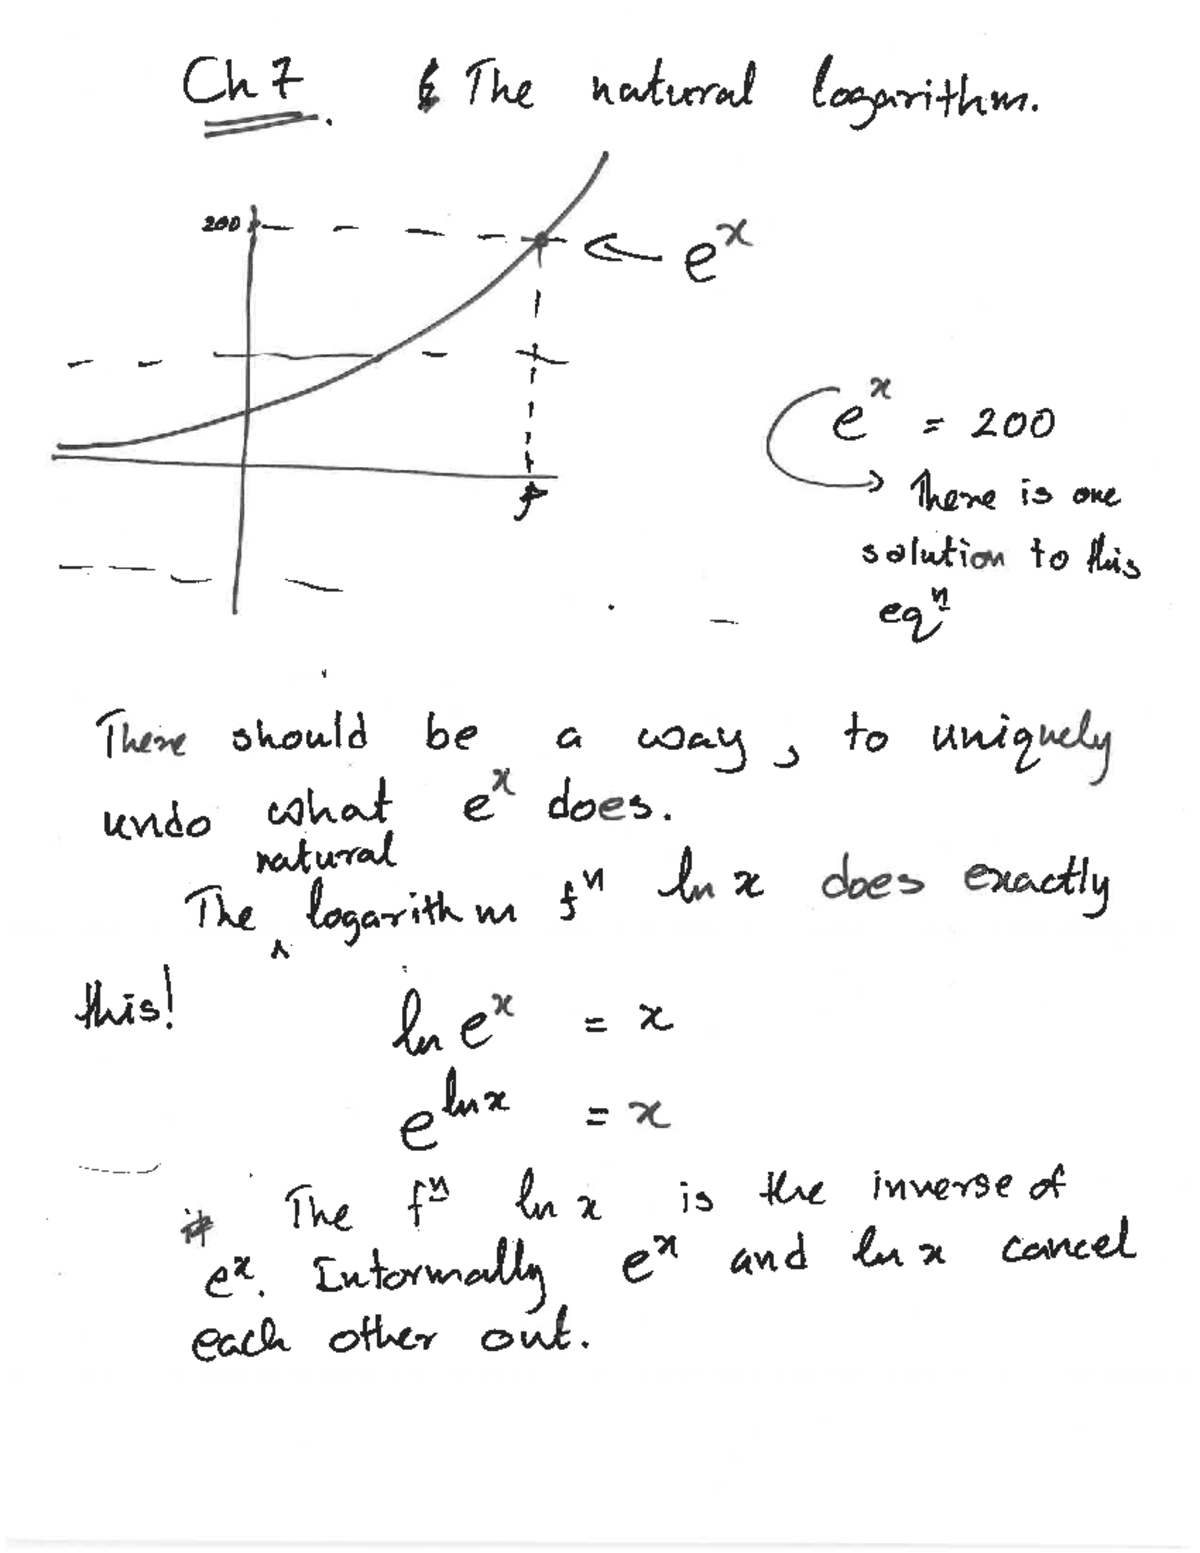 Ch 7. The natural logarithm.
200
eˣ
eˣ = 200
There is one
solution to this
eqⁿ
There should be a way, to uniquely
undo what eˣ does.
natural
The ^ logarithm fⁿ ln x does exactly
this!
ln eˣ = x
e^{ln x} = x
* The fⁿ ln x is the inverse of
eˣ. Informally eˣ and ln x cancel
each other out.